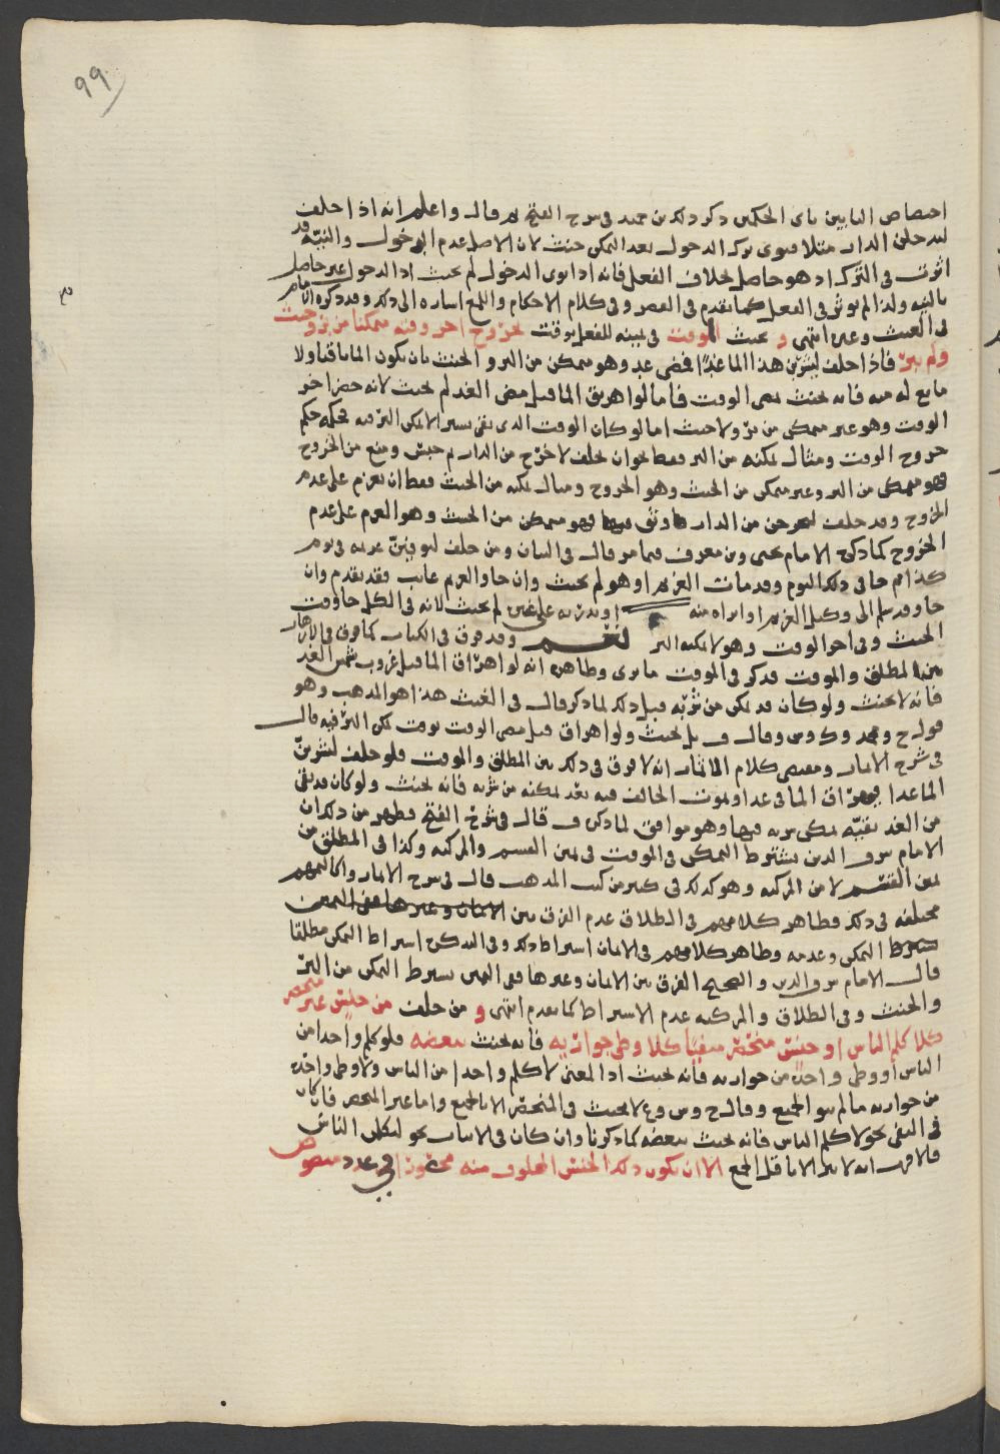 ٩٩
اختصاص النابين باى الحكمين ذكر ذلك بن حميد فى شرح الفتح ثم قال واعلم انه اذا حلف
ليدخلن الدار مثلا فنوى ترك الدخول بعد التمكن حنث لان الاصل عدم الدخول والنيّة قد
اثرت فى الترك اذ هو حاصل بخلاف الفعل فانه اذا نوى الدخول لم يحنث اذ الدخول غير حاصل
بالنيه ولذا لم يوثر فى الفعل كما تقدم فى القصر وفى كلام الاحكام واللمع اشاره الى ذلك وقد ذكره الامام
فى الغيث وغيره انتهى و يحنث الموقت فى يمينه للفعل بوقت بخروج اخر وقته متمكنا من بر وحنث
ولم يبرّ فاذا حلف ليشربن هذا الماء غدًا فمضى غد وهو متمكن من البر والحنث بان يكون الماء باقيا ولا
مانع له منه فانه يحنث بمضى الوقت فاما لو اهريق الماء قبل مضى الغد لم يحنث لانه حضر اخر
الوقت وهو غير متمكن من برّ ولا حنث اما لو كان الوقت الذى بقى يسير الا يمكن البر فيه فحكمه حكم
خروج الوقت ومثال تمكنه من البر فقط نحو ان يحلف لا خرج من الدار ثم حبس ومنع من الخروج
فهو متمكن من البر وغير متمكن من الحنث وهو الخروج ومثال تمكنه من الحنث فقط ان يعزم على عدم
الخروج وقد حلف ليخرجن من الدار فاوثق فيها فهو متمكن من الحنث وهو العزم على عدم
الخروج كما ذكره الامام يحيى وبن معروف فيما مر قال فى البيان ومن حلف ليوفينّ غريمه فى يوم
كذا ثم جا فى ذلك اليوم وقد مات الغريم او هو لم يحنث وان جا والغريم غايب فقد تقدم وان
جا وقد سلم الى وكيل الغريم او ابراه منه او نذر به على غيره لم يحنث لانه فى الكل جا وقت
الحنث وفى اخر الوقت وهو لا يمكنه البر نعم وقد فرق فى الكتاب كما فرق فى الازهار
بين المطلق والموقت فذكر فى الموقت ما ترى وظاهره انه لو اهراق الماء قبل غروب شمس الغد
فانه لا يحنث ولو كان قد تمكن من شربه قبل ذلك لما ذكر قال فى الغيث هذا هو المذهب وهو
قول ح ومحمد و ك وش وقال ف بل يحنث ولو اهراق قبل مضى الوقت بوقت يمكن البر فيه قال
فى شرح الاثمار ومقتضى كلام الاثمار انه لا فرق فى ذلك بين المطلق والموقت فلو حلف ليشربنّ
الماء غدا فيهراق الماء فى غد او يموت الحالف فيه بعد تمكنه من شربه فانه يحنث ولو كان قد بقى
من الغد بقيّه يمكن شربه فيها وهو موافق لما ذكره ف قال فى شرح الفتح فظهر من ذلك ان
الامام شرف الدين يشترط التمكن فى الموقت فى يمين القسم والمركبه وكذا فى المطلق من
يمين القسم لا من المركبه وهو كذلك فى كثير من كتب المذهب قال فى شرح الاثمار وكلامهم
مختلف فى ذلك فظاهر كلامهم فى الطلاق عدم الفرق بين الايمان وغيرها ففى اليمين
يشترط التمكن وعدمه وظاهر كلامهم فى الايمان اشتراط ذلك وفى التذكره اشتراط التمكن مطلقا
قال الامام شرف الدين والصحيح الفرق بين الايمان وغيرها ففى اليمين يشترط التمكن من البرّ
والحنث وفى الطلاق والمركبه عدم الاشتراط كما تقدم انتهى و من حلف من جنس غير منحصر
كلا كلم الناس او جنس منحصر منفيًا كلا وطى جواريه فانه يحنث ببعضه فلو كلم واحدا من
الناس او وطى واحدة من جواريه فانه يحنث اذ المعنى لا كلم واحدا من الناس ولا وطى واحدة
من جواريه مالم ينو الجميع وقال ح وش وع لا يحنث فى المنحصر الا بالجميع واما غير المنحصر فان كان
فى النفى نحو لا كلم الناس فانه يحنث ببعضه كما ذكرنا وان كان فى الاثبات نحو ليكلمن الناس
فالاقرب انه لا يبر الا باقل الجمع الا ان يكون ذلك الجنس المحلوف منه محصورا فى عدد منصوص